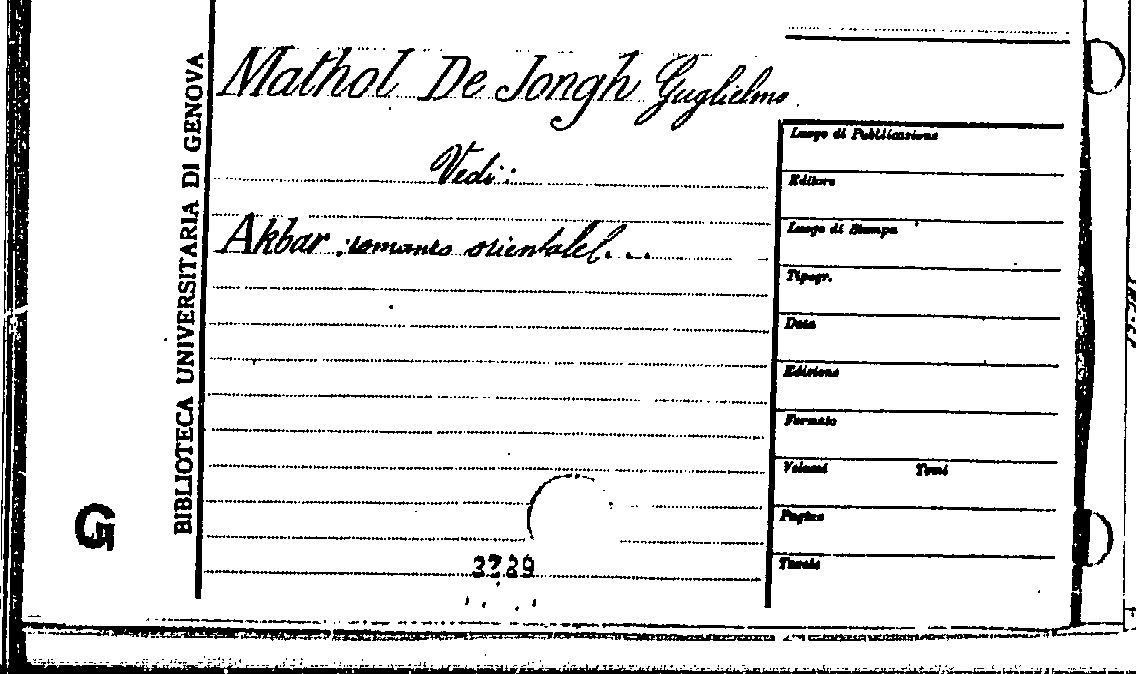 BIBLIOTECA UNIVERSITARIA DI GENOVA
G
Mathol De Jongh Guglielmo
Vedi:
Akbar: romanzo orientale ...
3729
Luogo di Pubblicazione
Editore
Luogo di Stampa
Tipogr.
Data
Edizione
Formato
Volumi Tomi
Pagine
Tavole